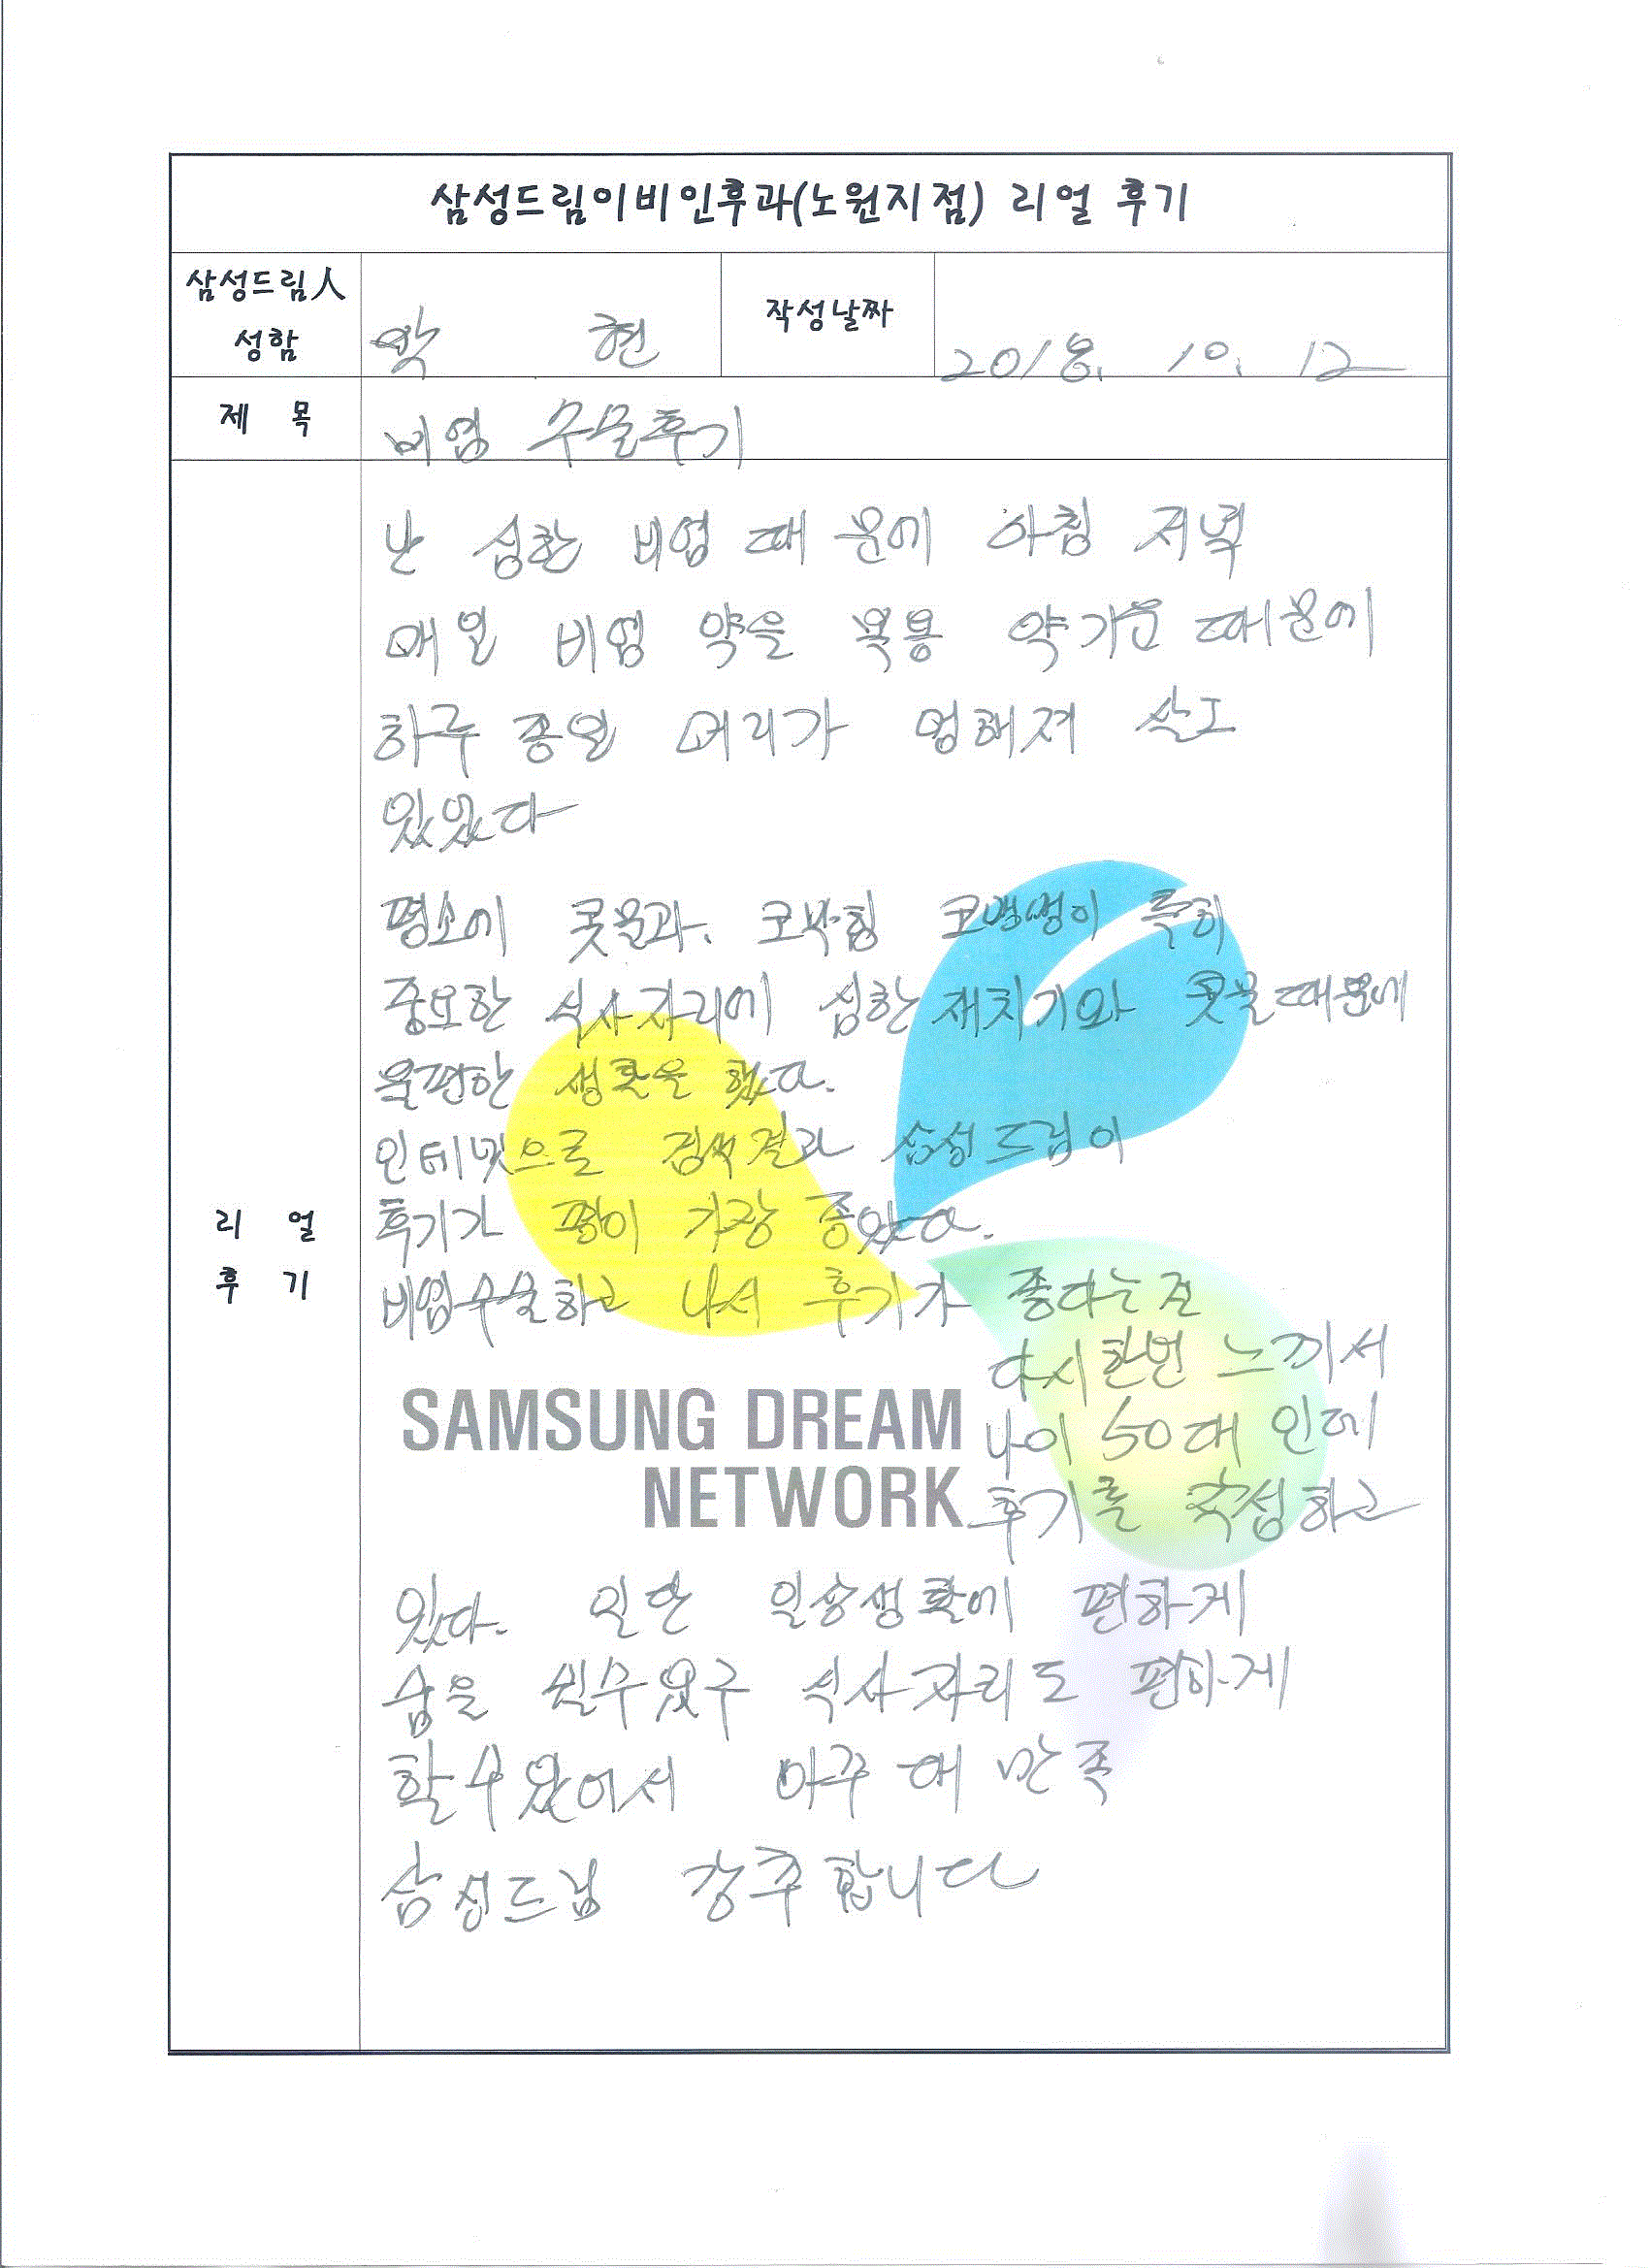 삼성드림이비인후과(노원지점) 리얼 후기
삼성드림人
성함
박 현
작성날짜
2018. 10. 12
제 목
비염 수술후기
리 얼
후 기
난 심한 비염 때문에 아침 저녁
매일 비염 약을 복용 약기운 때문에
하루 종일 머리가 멍해져 살고
있었다
평소에 콧물과. 코막힘 코맹맹이 특히
중요한 식사자리에 심한 재치기와 콧물때문에
불편한 생활을 했다.
인테넷으로 검색결과 삼성드림이
후기가 평이 가장 좋았다.
비염수술하고 나서 후기가 좋다는건
다시한번 느끼서
나이 50대 인데
후기를 작성하고
SAMSUNG DREAM
NETWORK
있다. 일단 일상생활에 편하게
숨을 쉴수있구 식사자리도 편하게
할수있어서 아주 대 만족
삼성드림 강추합니다